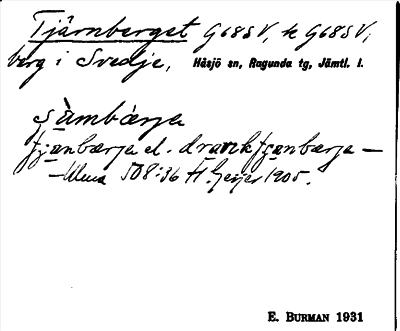 Tjärnberget G68SV, k G68SV,
berg i Svedje, Håsjö sn, Ragunda tg, Jämtl. l.
ʃàmbæ̀rja
tjɛnbærja el. dravktjɛnbærja —
508:36 H. Geijer 1905.
E. BURMAN 1931